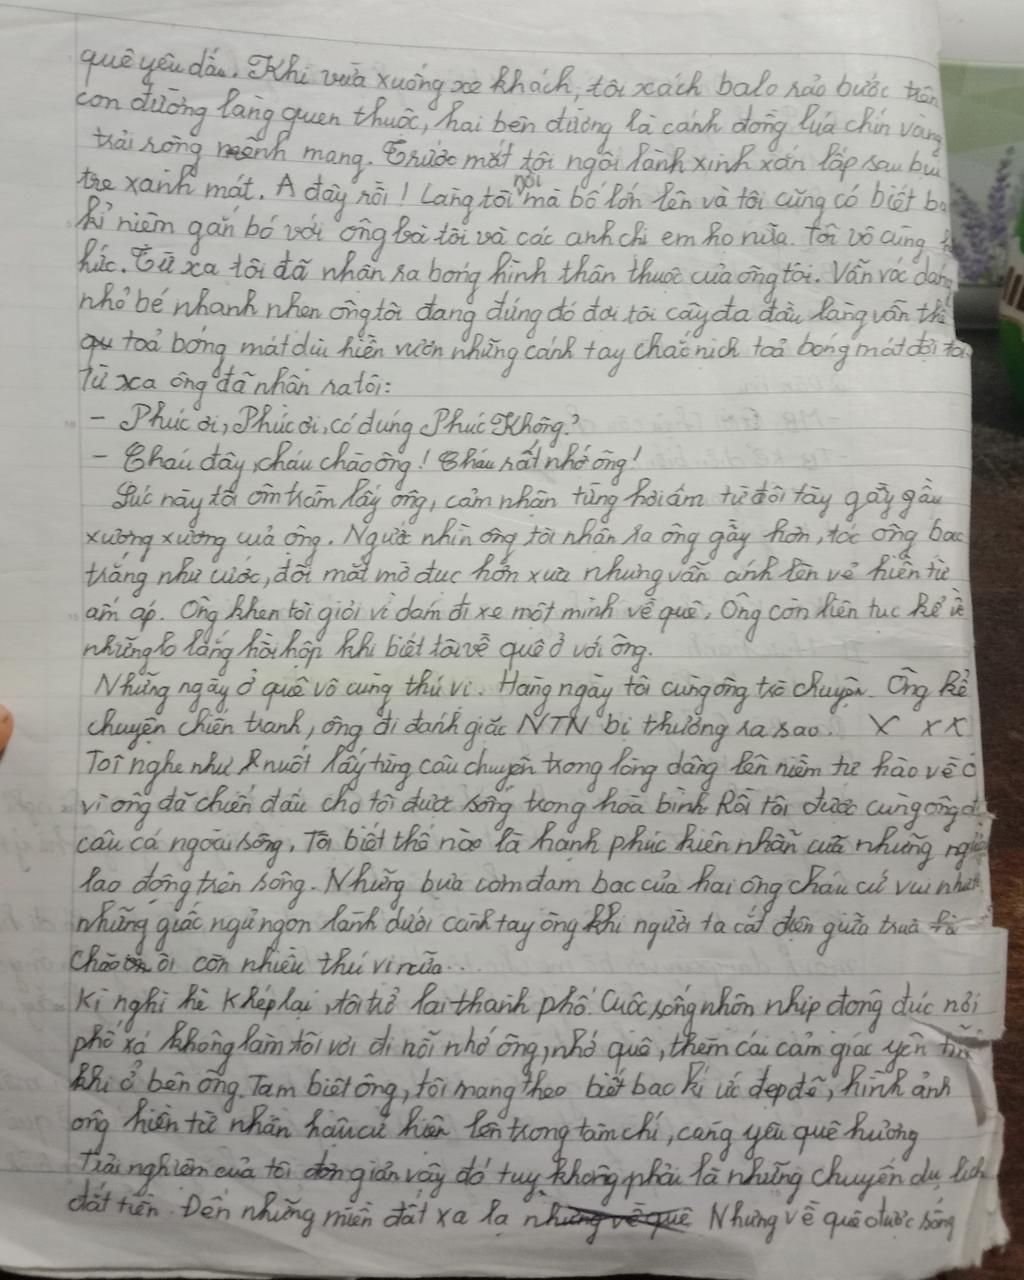 quê yêu dấu. Khi vừa xuống xe khách, tôi xách balo rảo bước trên
con đường làng quen thuộc, hai bên đường là cánh đồng lúa chín vàng
trải rộng mênh mang. Trước mắt tôi ngôi lành xinh xắn lấp sau bụi
tre xanh mát. A đây rồi! Làng tôi nơi mà bố lớn lên và tôi cũng có biết ba
kỉ niệm gắn bó với ông bà tôi và các anh chị em họ nữa. Tôi vô cùng
hức. Từ xa tôi đã nhận ra bóng hình thân thuộc của ông tôi. Vẫn vóc dáng
nhỏ bé nhanh nhẹn ông tôi đang đứng đó đợi tôi cây đa đầu làng vẫn thế
toả bóng mát dịu hiền vươn những cánh tay chắc nịch toả bóng mát đợi tôi
Từ xa ông đã nhận ra tôi:
- Phúc ơi, Phúc ơi, có đúng Phúc Không?
- Cháu đây, cháu chào ông! Cháu rất nhớ ông!
Lúc này tôi ôm trầm lấy ông, cảm nhận từng hơi ấm từ đôi tay gầy gầy
xương xương của ông. Ngước nhìn ông tôi nhận ra ông gầy hơn, tóc ông bạc
trắng như cước, đôi mắt mờ đục hơn xưa nhưng vẫn ánh lên vẻ hiền từ
ấm áp. Ông khen tôi giỏi vì dám đi xe một mình về quê. Ông còn liên tục kể về
những lo lắng hồi hộp khi biết tôi về quê ở với ông.
Những ngày ở quê vô cùng thú vị. Hàng ngày tôi cùng ông trò chuyện. Ông kể
chuyện chiến tranh, ông đi đánh giặc NTN bị thương ra sao. X XX
Tôi nghe như nuốt lấy từng câu chuyện trong lòng dâng lên niềm tự hào về ô
vì ông đã chiến đấu cho tôi được sống trong hoà bình Rồi tôi được cùng ông đi
câu cá ngoài sông. Tôi biết thế nào là hạnh phúc kiên nhẫn của những người
lao động trên sông. Những bữa cơm đạm bạc của hai ông cháu cứ vui
những giấc ngủ ngon lành dưới cánh tay ông khi người ta cắt điện giữa trưa
ôi còn nhiều thú vị nữa...
Kì nghỉ hè Khép lại, tôi trở lại thành phố. Cuộc sống nhộn nhịp đông đúc nơi
phố xá không làm tôi vơi đi nỗi nhớ ông, nhớ quê, thèm cái cảm giác yên
khi ở bên ông. Tạm biệt ông, tôi mang theo biết bao kí ức đẹp đẽ, hình ảnh
ông hiền từ nhân hậu cứ hiện lên trong tâm chí, càng yêu quê hương
Trải nghiệm của tôi đơn giản vậy đó tuy không phải là những chuyến du lịch
đắt tiền. Đến những miền đất xa lạ Nhưng về quê được sống